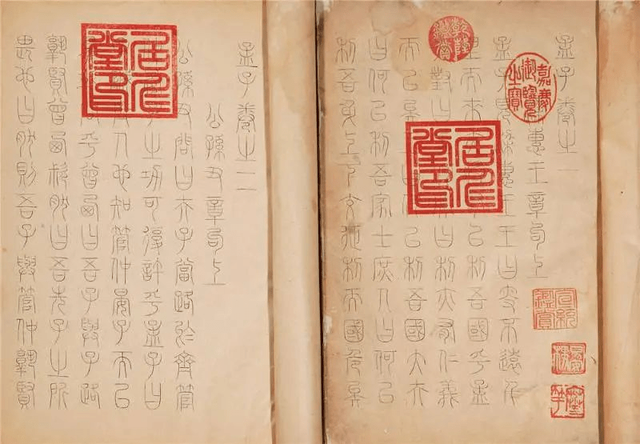 孟子卷之一
梁惠王章句上
孟子見梁惠王王曰叟不遠千
里而來亦將有以利吾國乎孟
子對曰王何必曰利亦有仁義
而已矣王曰何以利吾國大夫
曰何以利吾家士庶人曰何以
利吾身上下交征利而國危矣
嘉慶御覽之寶
居仁堂印
孟子卷之二
公孫丑章句上
公孫丑問曰夫子當路於齊管
仲晏子之功可復許乎孟子曰
子誠齊人也知管仲晏子而已
矣或問乎曾西曰吾子與子路
孰賢曾西蹵然曰吾先子之所
畏也曰然則吾子與管仲孰賢
居仁堂印